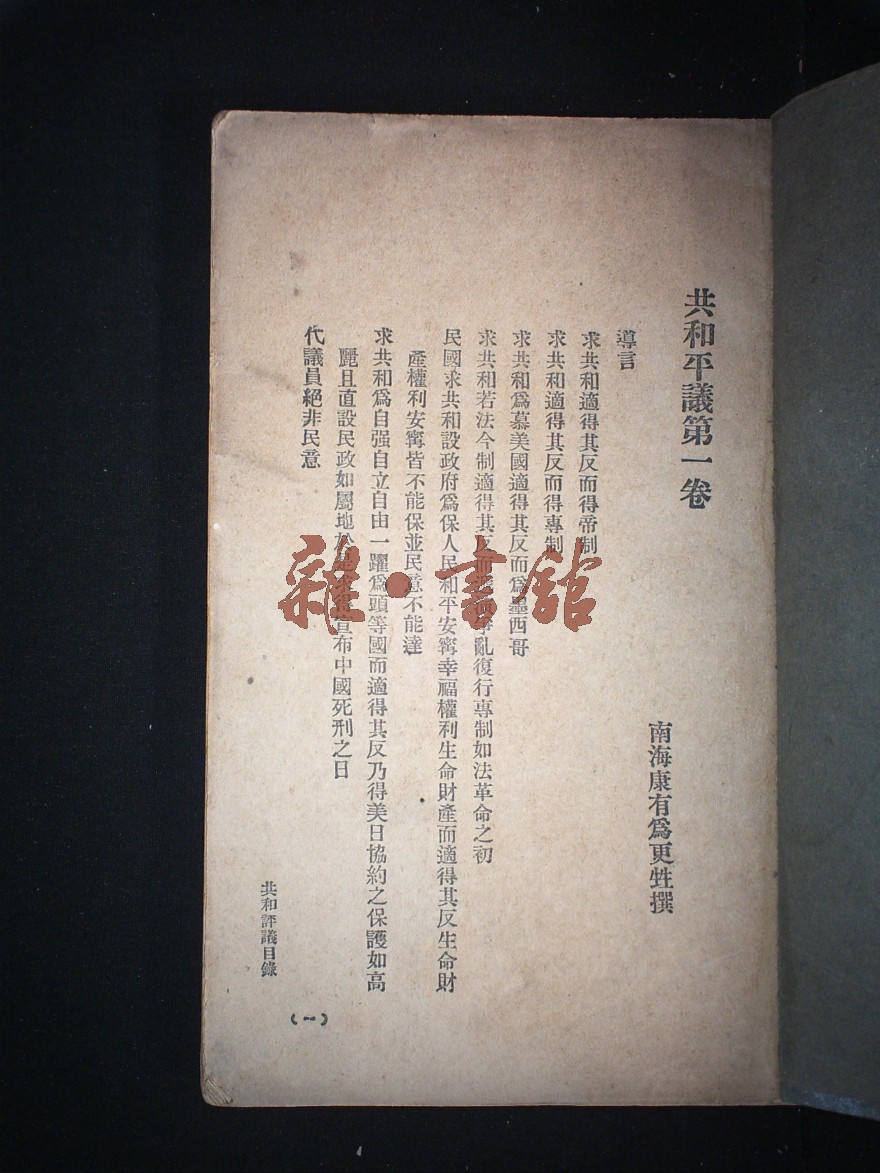 共和平議第一卷
南海康有爲更甡撰
導言
求共和適得其反而得帝制
求共和適得其反而得專制
求共和爲慕美國適得其反而爲墨西哥
求共和若法今制適得其反而亂復行專制如法革命之初
民國求共和設政府爲保人民和平安寧幸福權利生命財產而適得其反生命財
產權利安寧皆不能保並民意不能達
求共和爲自强自立自由一躍爲頭等國而適得其反乃得美日協約之保護如高
麗且直設民政如屬地宣布中國死刑之日
代議員絕非民意
共和評議目錄
(一)
雜·書館